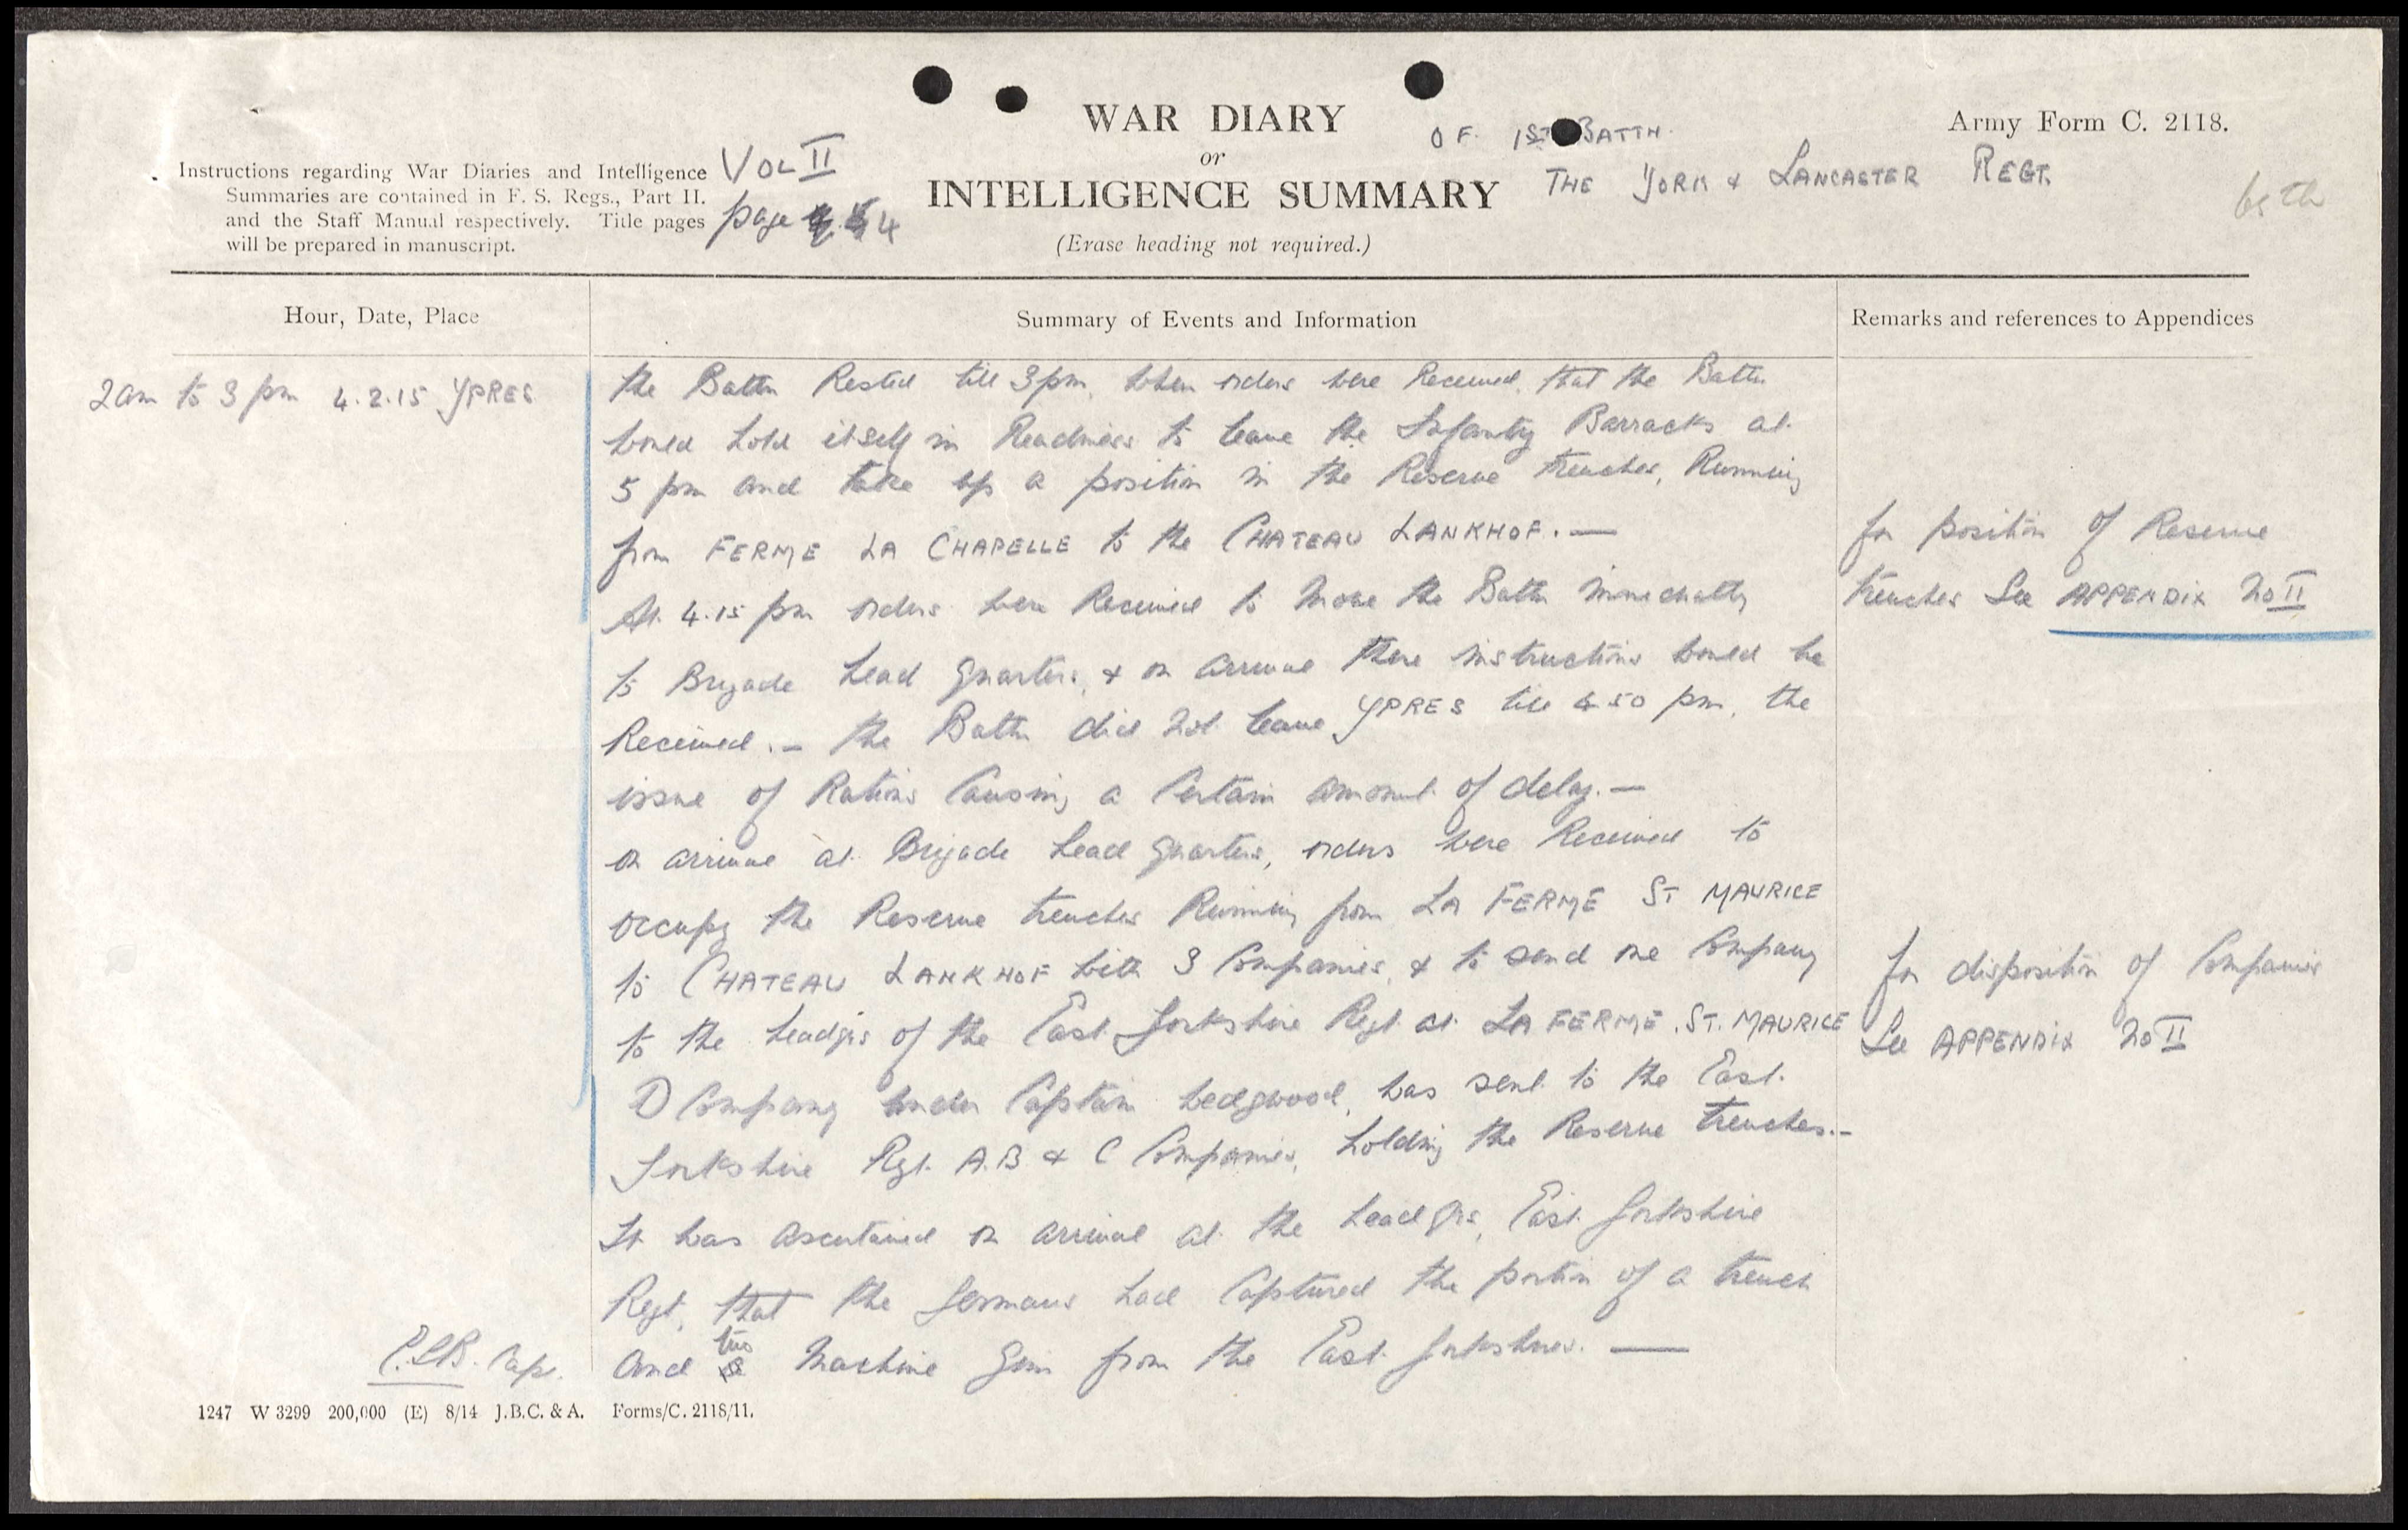 WAR DIARY
or
INTELLIGENCE SUMMARY
(Erase heading not required.)
OF 1ST BATTN.
THE YORK & LANCASTER REGT.
Army Form C. 2118.
Instructions regarding War Diaries and Intelligence
Summaries are contained in F. S. Regs., Part II.
and the Staff Manual respectively. Title pages
will be prepared in manuscript.
VOL II
page 4
Hour, Date, Place
Summary of Events and Information
Remarks and references to Appendices
2am to 3 pm 4.2.15 YPRES
the Battn Rested till 3pm, when orders were Received, that the Battn
would hold itself in Readiness to leave the Infantry Barracks at
5 pm and take up a position in the Reserve trenches, Running
from FERME LA CHAPELLE to the CHATEAU LANKHOF. —
At 4.15 pm orders were Received to Move the Battn immediately
to Brigade Head Quarters, & on arrival there instructions would be
Received. – the Battn did not leave YPRES till 4.50 pm, the
issue of Rations Causing a Certain amount of delay. —
on arrival at Brigade Head Quarters, orders were Received to
occupy the Reserve trenches Running from LA FERME ST MAURICE
to CHATEAU LANKHOF with 3 Companies, & to send one Company
to the Headqrs of the East Yorkshire Regt. at LA FERME. ST. MAURICE
D Company under Captain Wedgwood, was sent to the East.
Yorkshire Regt. A.B & C Companies, holding the Reserve trenches. –
It was ascertained on arrival at the Head Qrs, East Yorkshire
Regt, that the Germans had Captured the portion of a trench
two
and Machine Gun from the East Yorkshires. —
for position of Reserve
trenches See APPENDIX No II
for disposition of Companies
See APPENDIX No II
Capt.
1247 W 3299 200,000 (E) 8/14 J.B.C. & A. Forms/C. 2118/11.